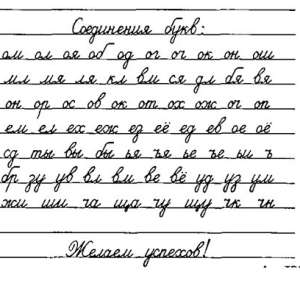 Соединения букв:
ам ал ая об од ог ог ок он ош
мл мя ля кл вм ся дл бя вя
он ор ос ов ок от ох ож ог оп
ем ел ех еж ез её ед ев ое оё
сд ты вы бы ья ъя ье ъе ьи ъ
бр зу ув вл вм ве вё уд уз ум
жи ши ча ща чу щу чк чн
Желаем успехов!